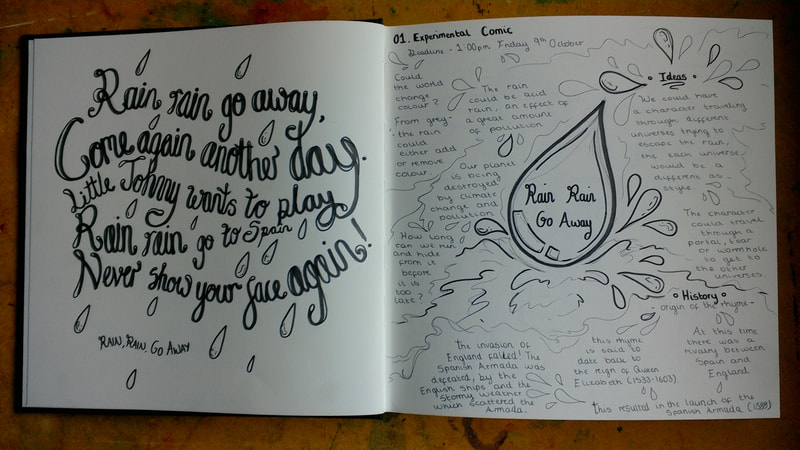 Rain rain go away,
Come again another day.
Little Johnny wants to play
Rain rain go to Spain
Never show your face again!
RAIN, RAIN, GO AWAY
01. Experimental Comic
Deadline - 1:00pm Friday 9th October
Could
the world
change
colour?
From grey-
the rain
could
either add
or remove
colour.
The rain
could be acid
rain; an effect of
a great amount
of pollution
Our planet
is being
destroyed
by climate
change and
pollution
How long
can we run
and hide
from it
before
it is
too
late?
Rain Rain
Go Away
Ideas
We could have
a character traveling
through different
universes trying to
escape the rain,
the each universe
would be a
different
style
The character
could travel
through a
portal, tear
or wormhole
to get to
the other
universes.
History
- origin of the rhyme -
At this time
there was a
rivalry between
Spain and
England
this rhyme
is said to
date back to
the reign of Queen
Elizabeth (1533-1603)
the invasion of
England failed! The
Spanish Armada was
defeated, by the
English ships and the
Stormy weather
which scattered the
Armada.
this resulted in the launch of the
Spanish Armada (1588)